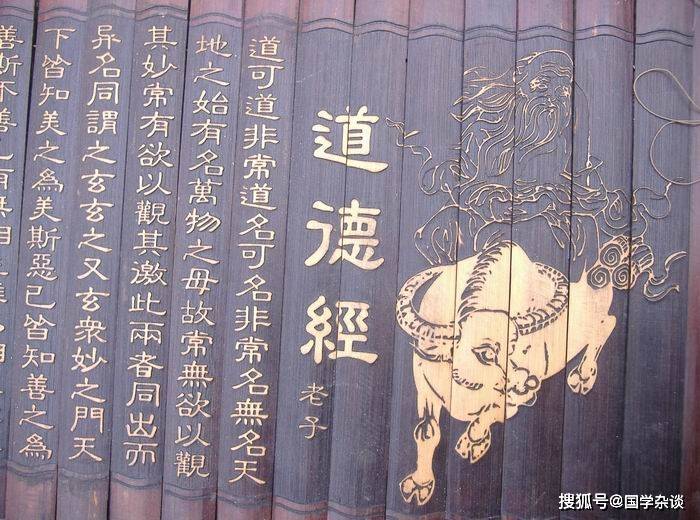 道德經
老子
道可道非常道名可名非常名無名天
地之始有名萬物之母故常無欲以觀
其妙常有欲以觀其邀此兩者同出而
异名同謂之玄玄之又玄衆妙之門天
下皆知美之為美斯惡已皆知善之為
善斯不善已有無相
搜狐号@国学杂谈